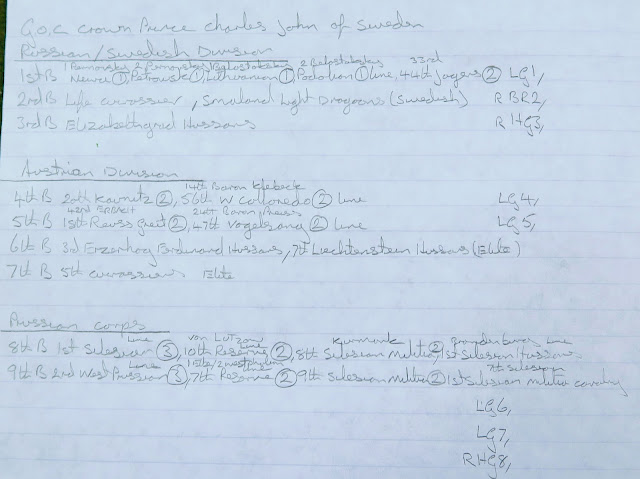 G.O.C Crown Prince Charles John of Sweden
Russian/Swedish Division
33rd
1st B Neura ①, Petrousk ①, Lithuanian ①, Podolian ① Line, 44th Jagers ② LG1,
2nd B Life cuirassier, Smaland Light Dragoons (Swedish) RBR2,
3rd B Elizabethgrad Hussars RHG3,
Austrian Division
14th Baron Klebeck
4th B 20th Kaunitz ②, 56th W Colloredo ② Line LG4,
42nd 24th Baron
5th B 18th Reuss Greitz ②, 47th Vogelsang ② Line LG5,
6th B 3rd Erzerhog Ferdinand Hussars, 7th Liechtenstein Hussars (Elite)
7th B 5th cuirassiers Elite
Prussian Corps
Line von Lutzow Line Kurmark Brandenburg Line
8th B 1st Silesian ③, 10th Reserve ②, 8th Silesian Militia, 1st Silesian Hussars
Line 7th Silesian
9th B 2nd West Prussian ③, 7th Reserve ② 9th Silesian Militia ② 1st Silesian militia cavalry
LG6,
LG7,
RHG8,